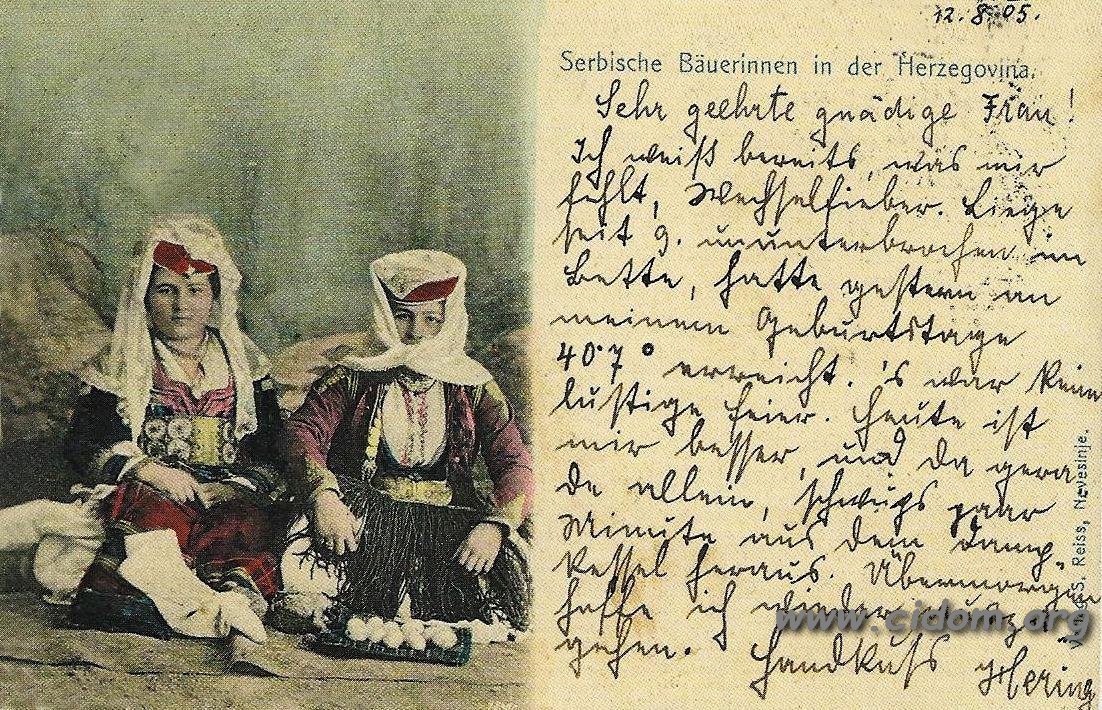 12. 8. 05.
Serbische Bäuerinnen in der Herzegovina.
Sehr geehrte gnädige Frau!
Ich weiß bereits, was mir
fehlt, Wechselfieber. Liege
seit 9. ununterbrochen im
Bette, hatte gestern an
meinem Geburtstage
40·7° erreicht. 's war keine
lustige Feier. Heute ist
mir besser, und da gera-
de allein, schwups paar
Minute aus dem Dampf-
kessel heraus. Übermorgen
hoffe ich wieder
gehen. Handkuß Hering
S. Reiss, Nevesinje.
www.cidom.org